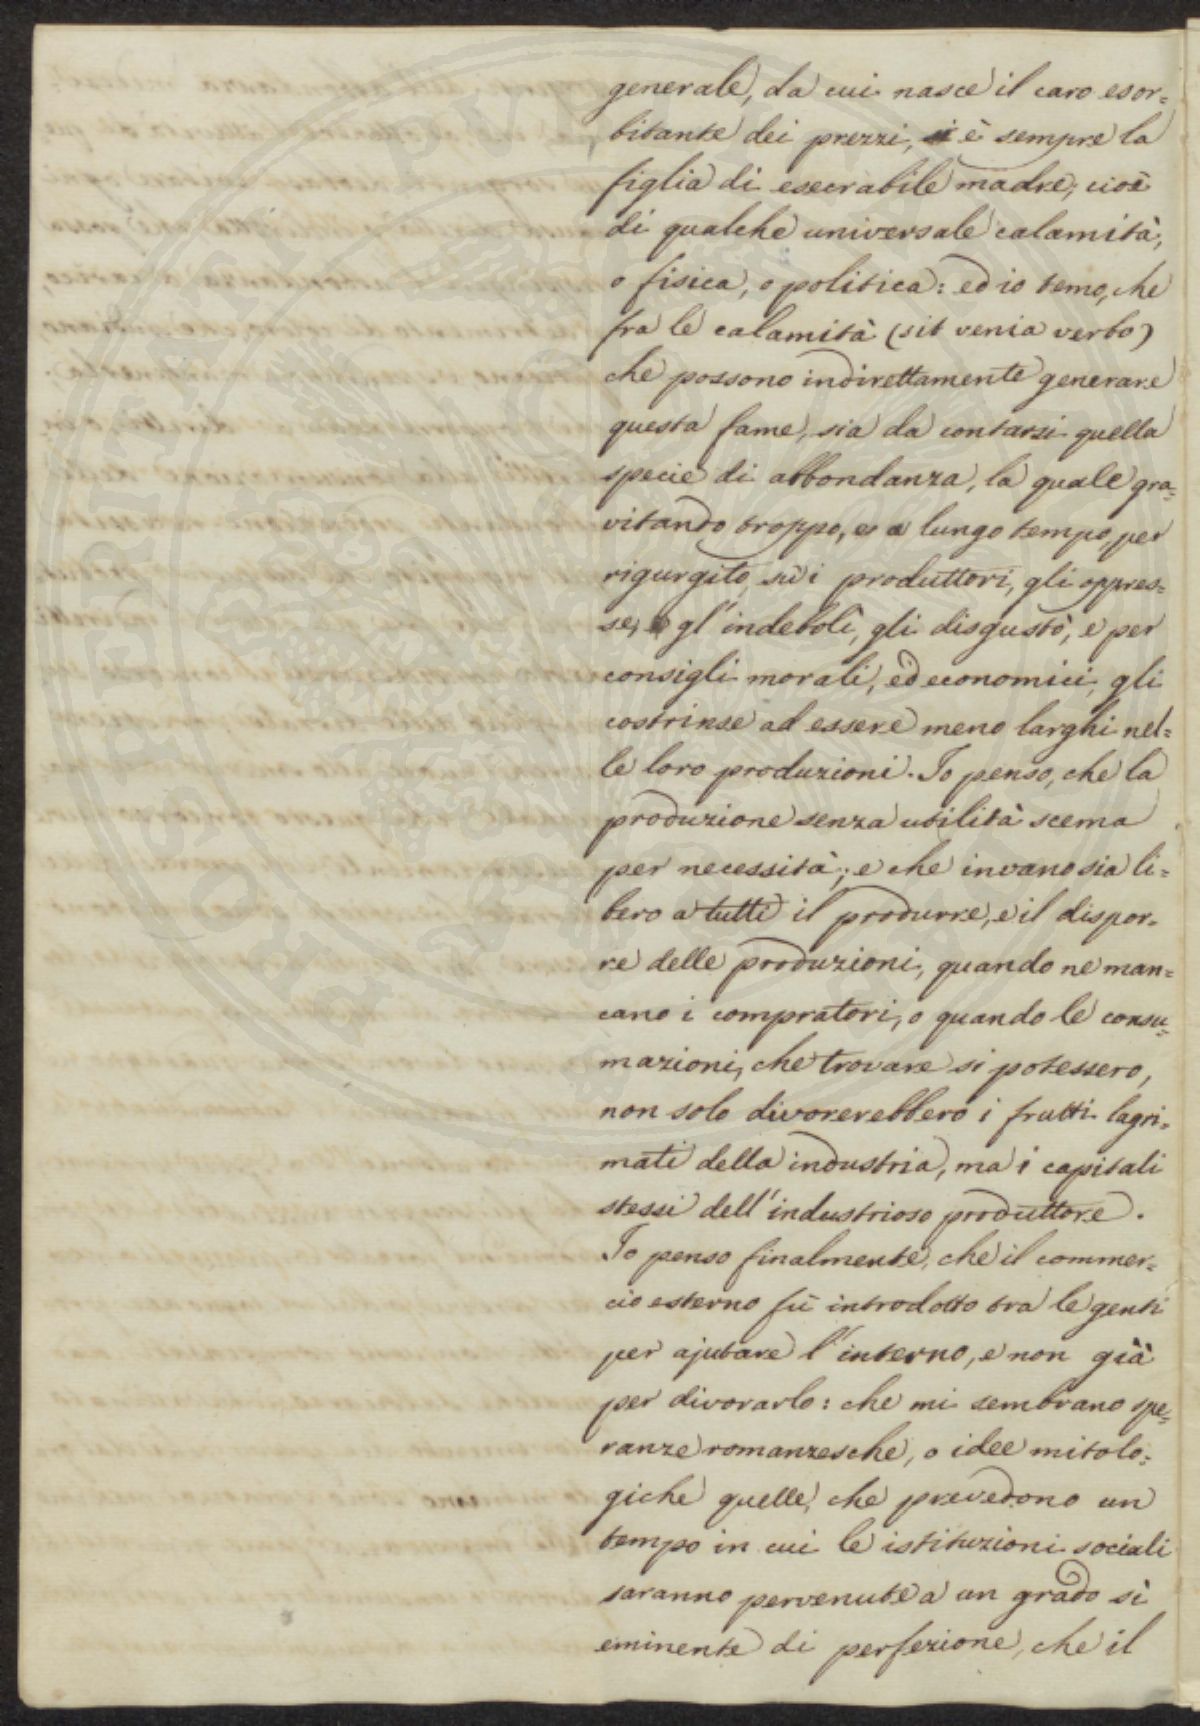 generale, da cui nasce il caro esor=
bitante dei prezzi, è sempre la
figlia di esecrabile madre; cioè
di qualche universale calamità,
o fisica, o politica: ed io temo, che
fra le calamità (sit venia verbo)
che possono indirettamente generare
questa fame, sia da contarsi quella
specie di abbondanza, la quale gra=
vitando troppo, e a lungo tempo, per
rigurgito, sù i produttori, gli oppres=
se, gl'indebolì, gli disgustò, e per
consigli morali, ed economici, gli
costrinse ad essere meno larghi nel=
le loro produzioni. Io penso, che la
produzione senza utilità scema
per necessità; e che invano sia li=
bero a tutti il produrre, e il dispor=
re delle produzioni, quando ne man=
cano i compratori, o quando le consu=
mazioni, che trovare si potessero,
non solo divorerebbero i frutti lagri=
mati della industria, ma i capitali
stessi dell'industrioso produttore.
Io penso finalmente, che il commer=
cio esterno fù introdotto tra le genti
per ajutare l'interno, e non già
per divorarlo: che mi sembrano spe=
ranze romanzesche, o idee mitolo=
giche quelle, che prevedono un
tempo in cui le istituzioni sociali
saranno pervenute a un grado sì
eminente di perfezione, che il